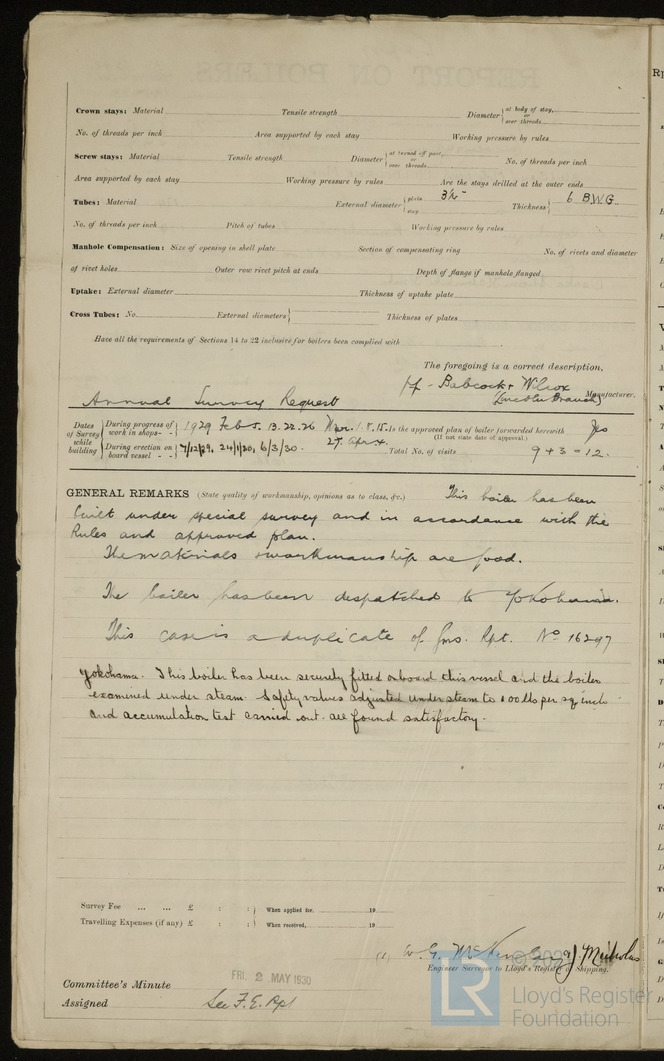 Crown stays: Material Tensile strength Diameter at body of stay, or over threads
No. of threads per inch Area supported by each stay Working pressure by rules
Screw stays: Material Tensile strength Diameter at turned off part, or over threads No. of threads per inch
Area supported by each stay Working pressure by rules Are the stays drilled at the outer ends
Tubes: Material External diameter plain 3¼" stay Thickness 6 B.W.G.
No. of threads per inch Pitch of tubes Working pressure by rules
Manhole Compensation: Size of opening in shell plate Section of compensating ring No. of rivets and diameter
of rivet holes Outer row rivet pitch at ends Depth of flange if manhole flanged
Uptake: External diameter Thickness of uptake plate
Cross Tubes: No. External diameters Thickness of plates
Have all the requirements of Sections 14 to 22 inclusive for boilers been complied with
The foregoing is a correct description,
Babcock & Wilcox
(Lincoln Branch) Manufacturer.
Annual Survey Request
Dates of Survey while building
During progress of work in shops - - 1929 Feb 5. 13. 22. 26 Mar. 1. 8. 15. 27. Apr 4.
During erection on board vessel - - 7/12/29, 24/1/30, 6/3/30.
Is the approved plan of boiler forwarded herewith Yes
(If not state date of approval.)
Total No. of visits 9 + 3 = 12.
GENERAL REMARKS (State quality of workmanship, opinions as to class, &c.) This boiler has been
built under special survey and in accordance with the
Rules and approved plan.
The materials & workmanship are good.
The boiler has been despatched to Yokohama.
This case is a duplicate of Rpt. No 16297
Yokohama. This boiler has been securely fitted onboard this vessel and the boiler
examined under steam. Safety valves adjusted under steam to 100 lbs per sq inch
and accumulation test carried out. all found satisfactory.
Survey Fee ... ... £ : : When applied for, 19
Travelling Expenses (if any) £ : : When received, 19
W. G. J. Nicholas
Engineer Surveyor to Lloyd's Register of Shipping.
FRI. 2 MAY 1930
Committee's Minute
Assigned See F.E. Rpt
LR Lloyd's Register
Foundation